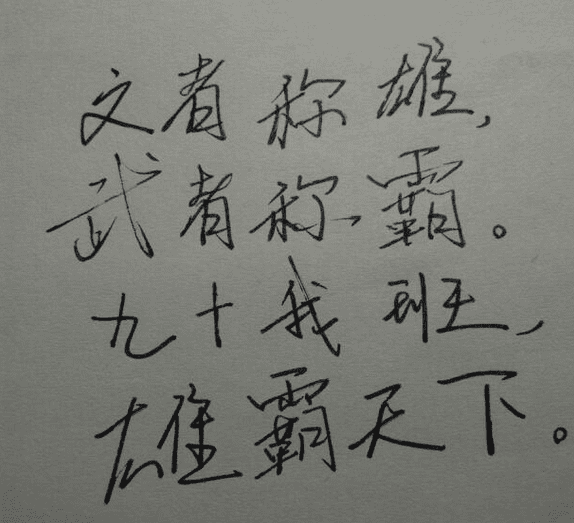 文者称雄，
武者称霸。
九十我班，
雄霸天下。